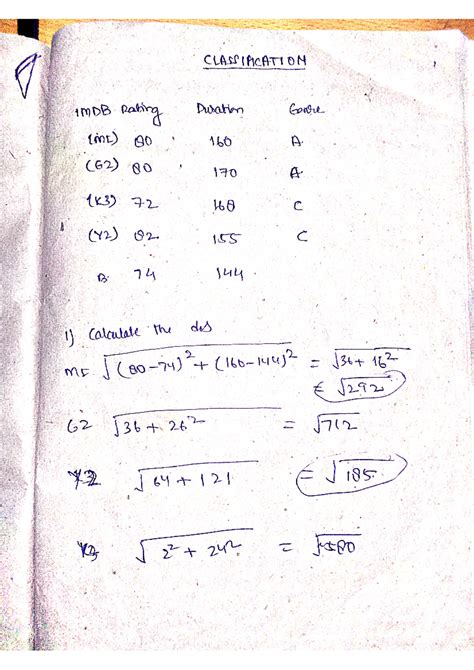 CLASSIFICATION
IMDB Rating Duration Genre
(M1) 80 160 A
(G2) 80 170 A
(K3) 72 168 C
(Y2) 82 155 C
B 74 144
1) Calculate the dis
M1 √(80-74)² + (160-144)² = √36 + 16²
= √292
G2 √36 + 26² = √712
√64 + 121 = √185
√2² + 24² = √580